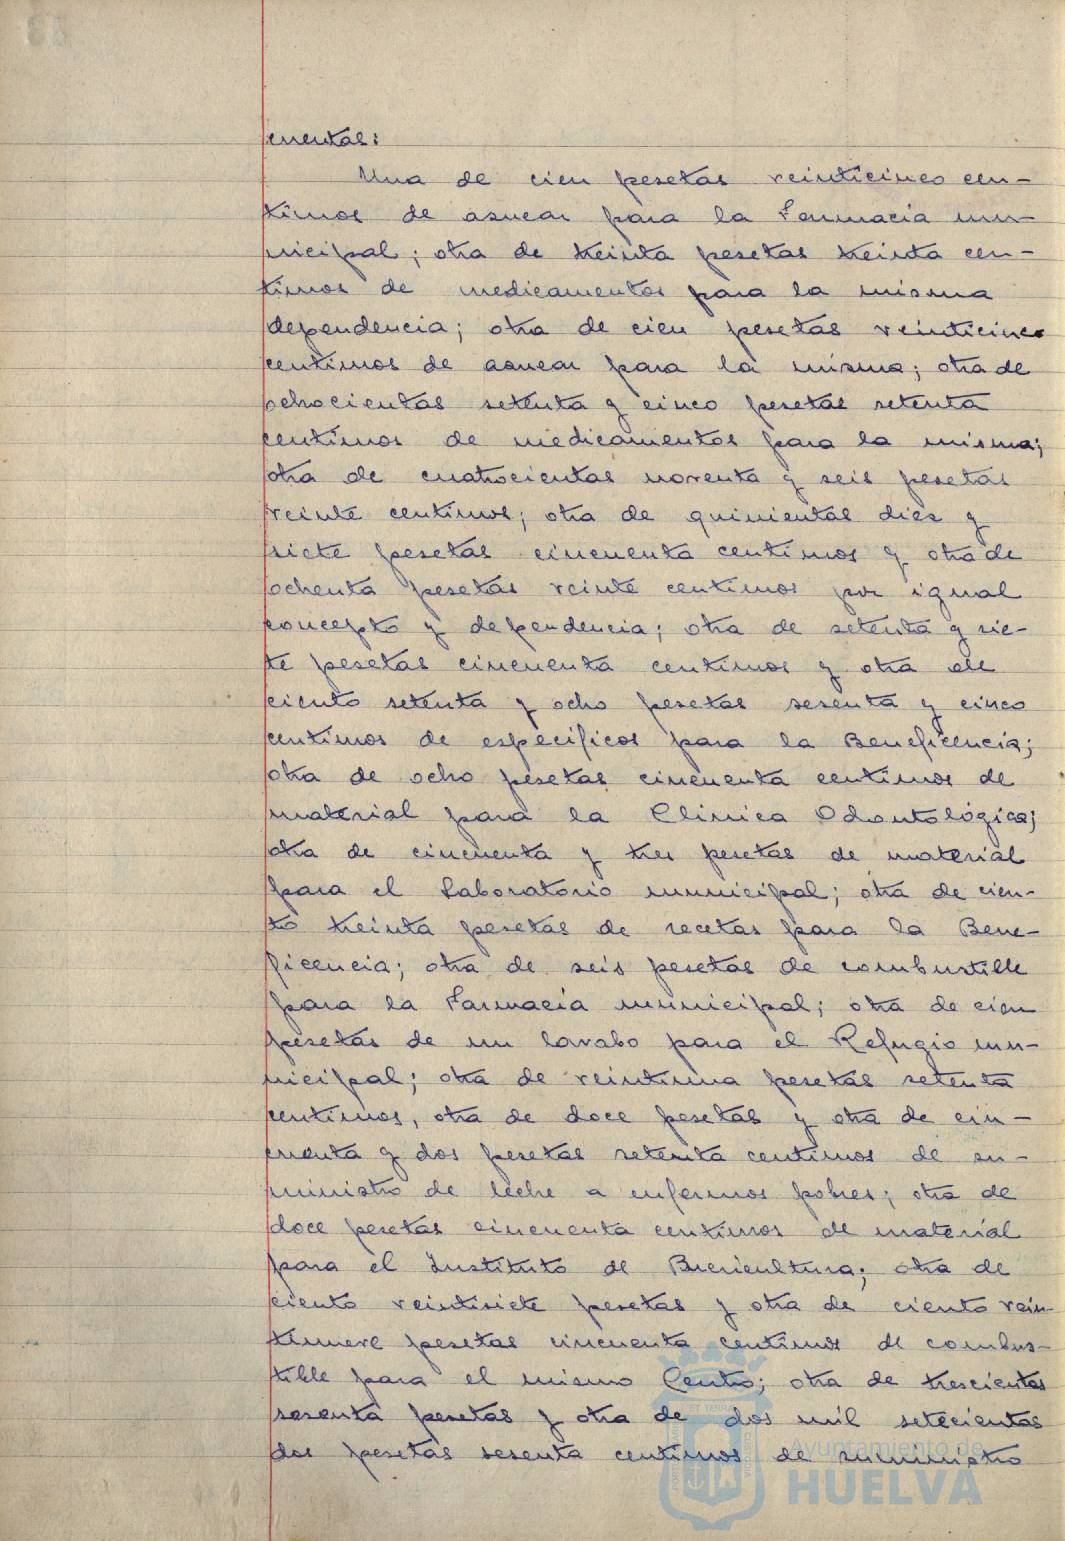 cuentas:
Una de cien pesetas veinticinco cen-
timos de asucar para la Farmacia mu-
nicipal; otra de treinta pesetas treinta cen-
timos de medicamentos para la misma
dependencia; otra de cien pesetas veinticinco
centimos de asucar para la misma; otra de
ochocientas setenta y cinco pesetas setenta
centimos de medicamentos para la misma;
otra de cuatrocientas noventa y seis pesetas
veinte centimos; otra de quinientas diez y
siete pesetas cincuenta centimos y otra de
ochenta pesetas veinte centimos por igual
concepto y dependencia; otra de setenta y sie-
te pesetas cincuenta centimos y otra de
ciento setenta y ocho pesetas sesenta y cinco
centimos de específicos para la Beneficencia;
otra de ocho pesetas cincuenta centimos de
material para la Clinica Odontológica;
otra de cincuenta y tres pesetas de material
para el Laboratorio municipal; otra de cien-
to treinta pesetas de recetas para la Bene-
ficencia; otra de seis pesetas de combustible
para la Farmacia municipal; otra de cien
pesetas de un lavabo para el Refugio mu-
nicipal; otra de veintiuna pesetas setenta
centimos, otra de doce pesetas y otra de cin-
cuenta y dos pesetas setenta centimos de su-
ministro de leche a enfermos pobres; otra de
doce pesetas cincuenta centimos de material
para el Instituto de Puericultura; otra de
ciento veintisiete pesetas y otra de ciento vein-
tinueve pesetas cincuenta centimos de combus-
tible para el mismo Centro; otra de trescientas
sesenta pesetas y otra de dos mil setecientas
dos pesetas sesenta centimos de suministro
Ayuntamiento de
HUELVA